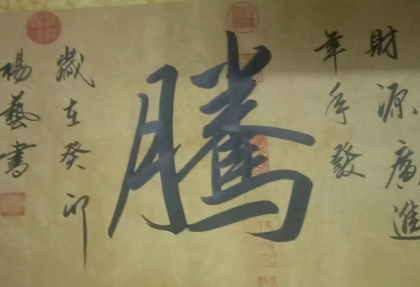 財源廣進
年年發
騰
歲在癸卯
楊藝書